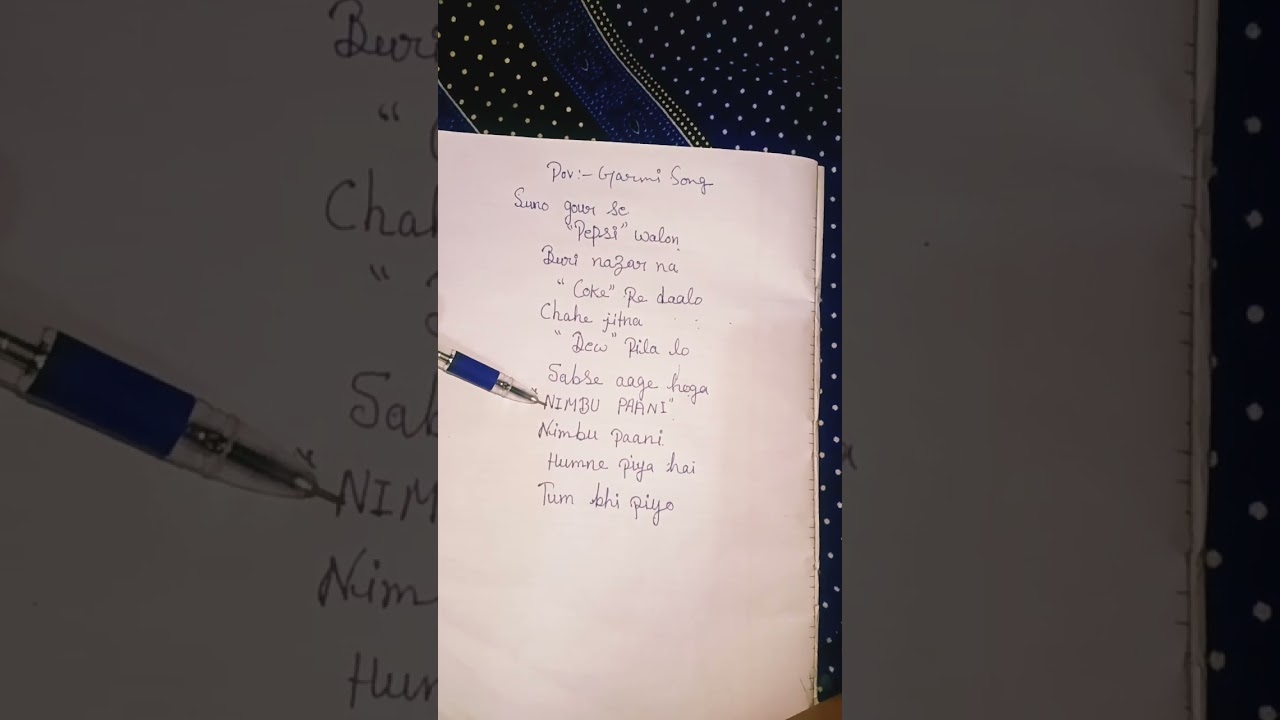 Pov:- Garmi Song
Suno gour se
"Pepsi" walon
Buri nazar na
"Coke" Pe daalo
Chahe jitna
"Dew" Pila lo
Sabse aage hoga
"NIMBU PAANI"
Nimbu paani
Humne piya hai
Tum bhi piyo